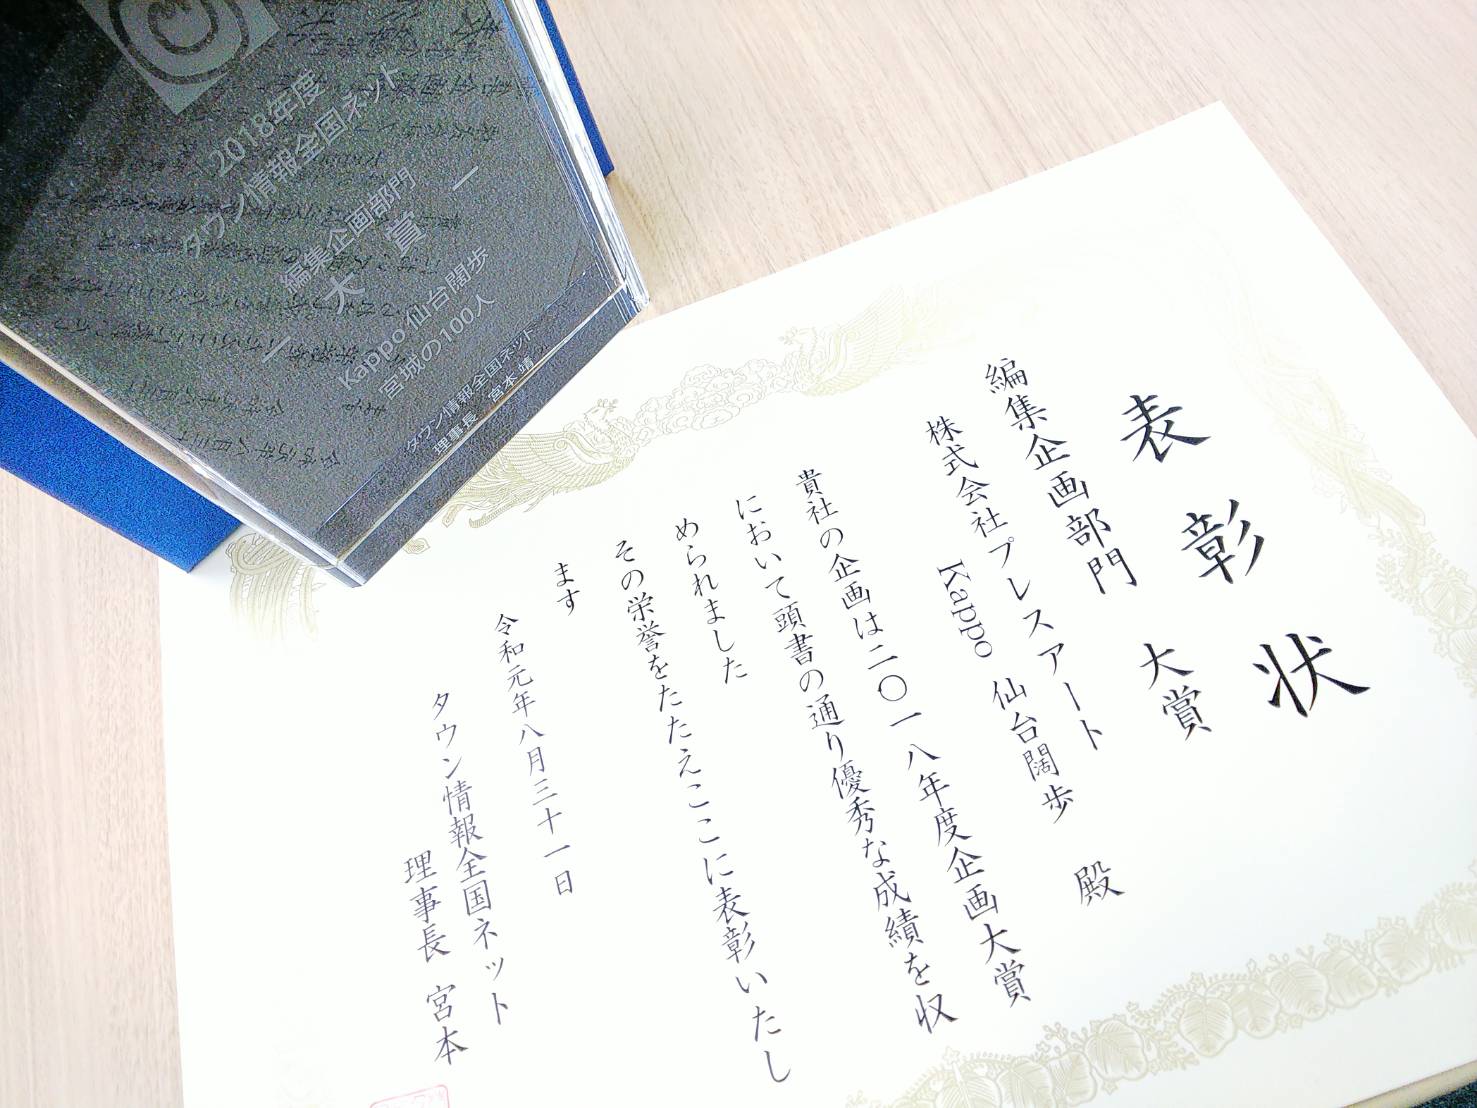 2018年度
タウン情報全国ネット
編集企画部門
― 大賞 ―
Kappo 仙台闊歩
宮城の100人
タウン情報全国ネット
理事長 宮本 靖
表彰状
編集企画部門 大賞
株式会社プレスアート
Kappo 仙台闊歩 殿
貴社の企画は二〇一八年度企画大賞
において頭書の通り優秀な成績を収
められました
その栄誉をたたえここに表彰いたし
ます
令和元年八月三十一日
タウン情報全国ネット
理事長 宮本